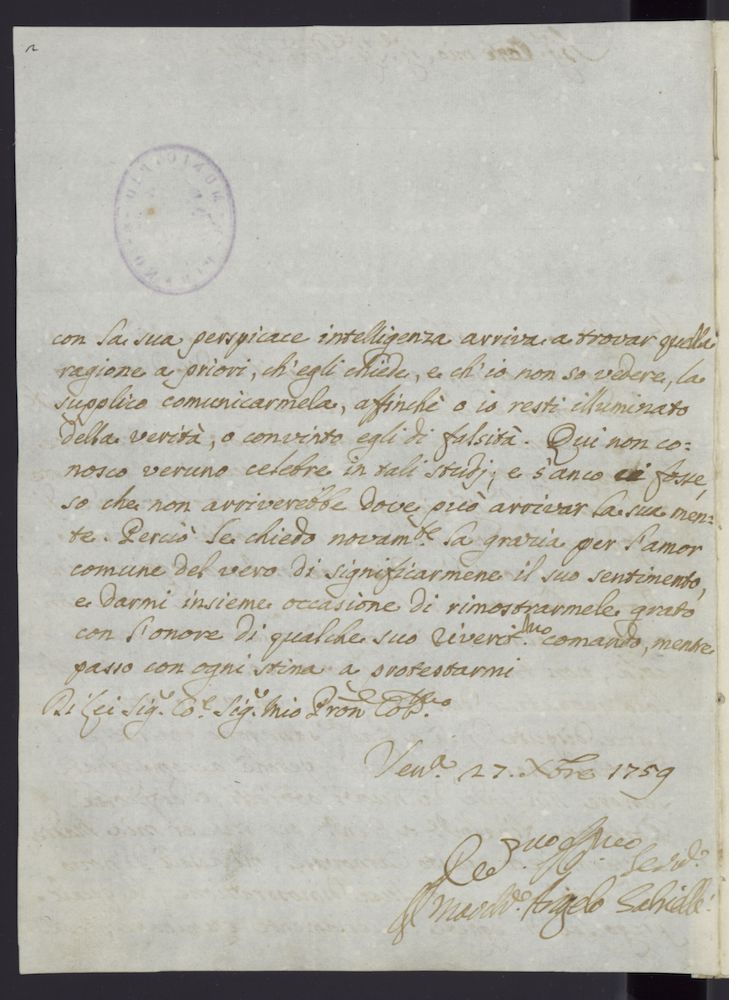 con la sua perspicace intelligenza arriva a trovar quella
ragione a priori, ch'egli chiede, e ch'io non so vedere, la
supplico comunicarmela, affinchè o io resti illuminato
della verità, o convinto egli di falsità. Qui non co=
nosco veruno celebre in tali studj; e s'anco ci fosse,
so che non arriverebbe dove può arrivar la sua men=
te. Perciò le chiedo novam.te la grazia per l'amor
comune del vero di significarmene il suo sentimento,
e darmi insieme occasione di rimostrarmele grato
con l'onore di qualche suo riverit.mo comando, mentre
passo con ogni stima a protestarmi
Di Lei Sig.r Co.e Sig.r mio Pron
Ven.a 27. Xbre 1759
Angelo